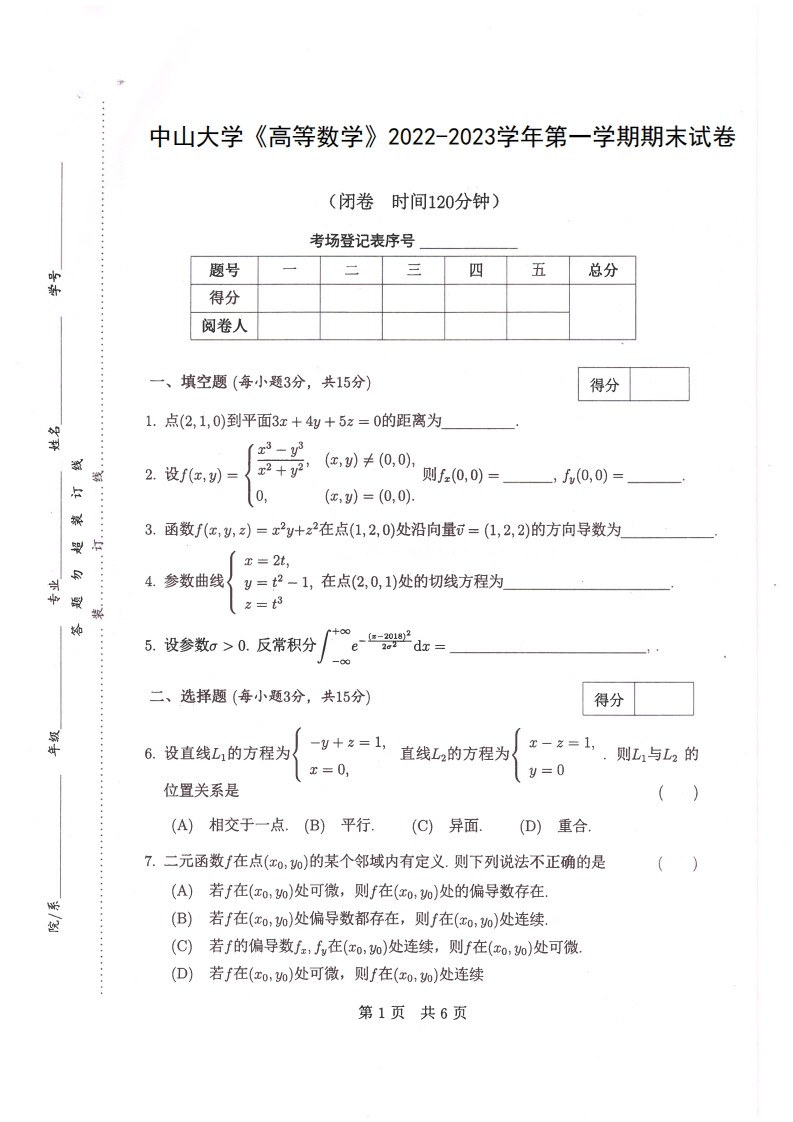 中山大学《高等数学》2022-2023学年第一学期期末试卷
（闭卷 时间120分钟）
考场登记表序号 ____________
题号 一 二 三 四 五 总分
得分
阅卷人
一、填空题 (每小题3分，共15分) 得分
1. 点(2, 1, 0)到平面3x + 4y + 5z = 0的距离为_________.
2. 设f(x, y) = { (x³ − y³)/(x² + y²), (x, y) ≠ (0, 0), 0, (x, y) = (0, 0). 则f_x(0, 0) = ______, f_y(0, 0) = ______.
3. 函数f(x, y, z) = x²y+z²在点(1, 2, 0)处沿向量v⃗ = (1, 2, 2)的方向导数为___________.
4. 参数曲线{ x = 2t, y = t² − 1, z = t³ 在点(2, 0, 1)处的切线方程为____________________.
5. 设参数σ > 0. 反常积分∫_{−∞}^{+∞} e^{−(x−2018)²/(2σ²)} dx = ________________________, .
二、选择题 (每小题3分，共15分) 得分
6. 设直线L₁的方程为{ −y + z = 1, x = 0, 直线L₂的方程为{ x − z = 1, y = 0 . 则L₁与L₂ 的
位置关系是 ( )
(A) 相交于一点. (B) 平行. (C) 异面. (D) 重合.
7. 二元函数f在点(x₀, y₀)的某个邻域内有定义. 则下列说法不正确的是 ( )
(A) 若f在(x₀, y₀)处可微，则f在(x₀, y₀)处的偏导数存在.
(B) 若f在(x₀, y₀)处偏导数都存在，则f在(x₀, y₀)处连续.
(C) 若f的偏导数f_x, f_y在(x₀, y₀)处连续，则f在(x₀, y₀)处可微.
(D) 若f在(x₀, y₀)处可微，则f在(x₀, y₀)处连续
第 1 页 共 6 页
院/系__________ 年级__________ 专业__________ 姓名__________ 学号__________
答 题 勿 超 装 订 线
装 订 线